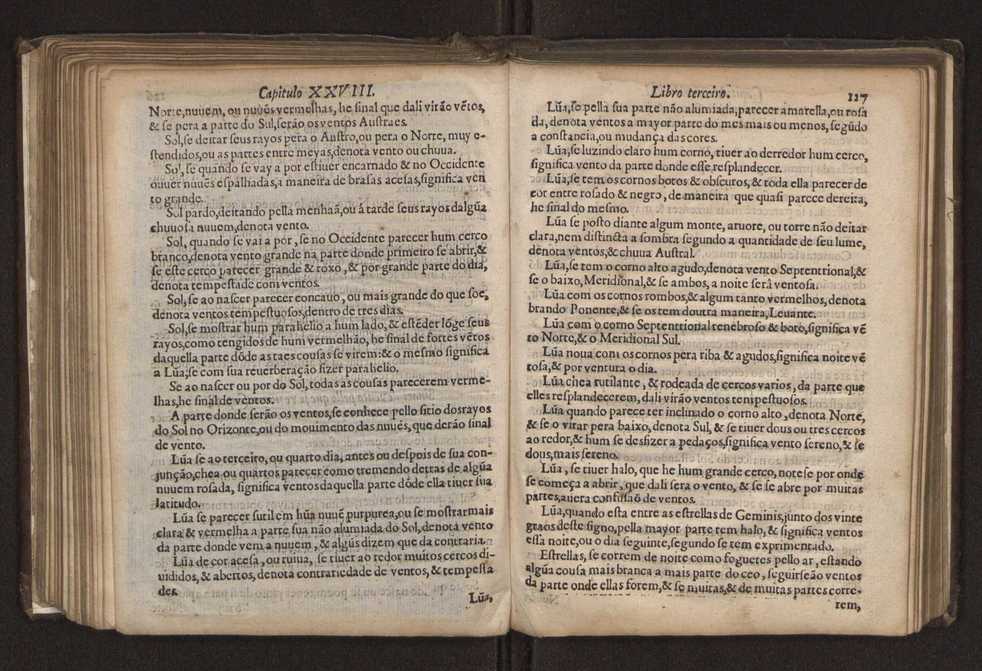 Capitulo XXVIII.
Norte,nuuem, ou nuuẽs vermelhas, he sinal que dali virão vẽtos,
& se pera a parte do Sul,serão os ventos Austraes.
Sol,se deitar seus rayos pera o Austro,ou pera o Norte, muy e-
stendidos,ou as partes entre meyas,denota vento ou chuua.
Sol, se quando se vay a por estiuer encarnado & no Occidente
ouuer nuuẽs espalhadas,a maneira de brasas acesas,significa ven
to grande.
Sol pardo,deitando pella menhaã,ou á tarde seus rayos dalgũa
chuuosa nuuem,denota vento.
Sol, quando se vai a pôr, se no Occidente parecer hum cerco
branco,denota vento grande na parte donde primeiro se abrir,&
se este cerco parecer grande & roxo, & por grande parte do dia,
denota tempestade com ventos.
Sol,se ao nascer parecer concauo, ou mais grande do que soe,
denota ventos tempestuosos,dentro de tres dias.
Sol,se mostrar hum parahelio a hum lado,& estẽder lõge seus
rayos,como tengidos de hum vermelhão, he sinal de fortes vẽtos
daquella parte dõde as taes cousas se virem:& o mesmo significa
a Lũa,se com sua reuerberação fizer parahelio.
Se ao nascer ou por do Sol,todas as cousas parecerem verme-
lhas,he sinal de ventos.
A parte donde serão os ventos,se conhece pello sitio dos rayos
do Sol no Orizonte,ou do mouimento das nuuẽs,que derão sinal
de vento.
Lũa se ao terceiro, ou quarto dia, antes ou despois de sua con-
junção,chea ou quartos parecer como tremendo detras de algũa
nuuem rosada, significa ventos daquella parte dõde ella tiuer sua
latitudo.
Lũa se parecer sutil em hũa nuuẽ purpurea,ou se mostrar mais
clara & vermelha a parte sua não alumiada do Sol,denota vento
da parte donde vem a nuuem, & algũs dizem que da contraria.
Lũa de cor acesa, ou ruiua, se tiuer ao redor muitos cercos di-
uididos, & abertos, denota contrariedade de ventos,& tempesta
des.
Lũa,
Libro terceiro.
117
Lũa,se pella sua parte não alumiada,parecer amarella,ou rosa
da, denota ventos a mayor parte do mes mais ou menos, segũdo
a constancia,ou mudança das cores.
Lũa,se luzindo claro hum corno, tiuer ao derredor hum cerco,
significa vento da parte donde esse resplandecer.
Lũa,se tem os cornos botos & obscuros,& toda ella parecer de
cor entre rosado & negro, de maneira que quasi parece dereita,
he sinal do mesmo.
Lũa se posto diante algum monte, aruore, ou torre não deitar
clara,nem distincta a sombra segundo a quantidade de seu lume,
denota ventos,& chuua Austral.
Lũa,se tem o corno alto agudo,denota vento Septentrional,&
se o baixo,Meridional,& se ambos, a noite será ventosa.
Lũa com os cornos rombos,& algum tanto vermelhos, denota
brando Ponente,& se os tem doutra maneira,Leuante.
Lũa com o corno Septentrional tenebroso & boto,significa vẽ
to Norte,& o Meridional Sul.
Lũa noua com os cornos pera riba & agudos,significa noite vẽ
tosa,& por ventura o dia.
Lũa chea rutilante, & rodeada de cercos varios, da parte que
elles resplandecerem, dali virão ventos tempestuosos.
Lũa quando parece ter inclinado o corno alto, denota Norte,
& se o virar pera baixo, denota Sul, & se tiuer dous ou tres cercos
ao redor,& hum se desfizer a pedaços,significa vento sereno,& se
dous,mais sereno.
Lũa, se tiuer halo, que he hum grande cerco, notese por onde
se começa a abrir, que dali sera o vento, & se se abre por muitas
partes,auera confusaõ de ventos.
Lũa,quando esta entre as estrellas de Geminis,junto dos vinte
graos deste signo,pella mayor parte tem halo,& significa ventos
essa noite,ou o dia seguinte,segundo se tem exprimentado.
Estrellas, se correm de noite como foguetes pello ar, estando
algũa cousa mais branca a mais parte do ceo, seguirseão ventos
da parte onde ellas forem,& se muitas,& de muitas partes corre-
rem,